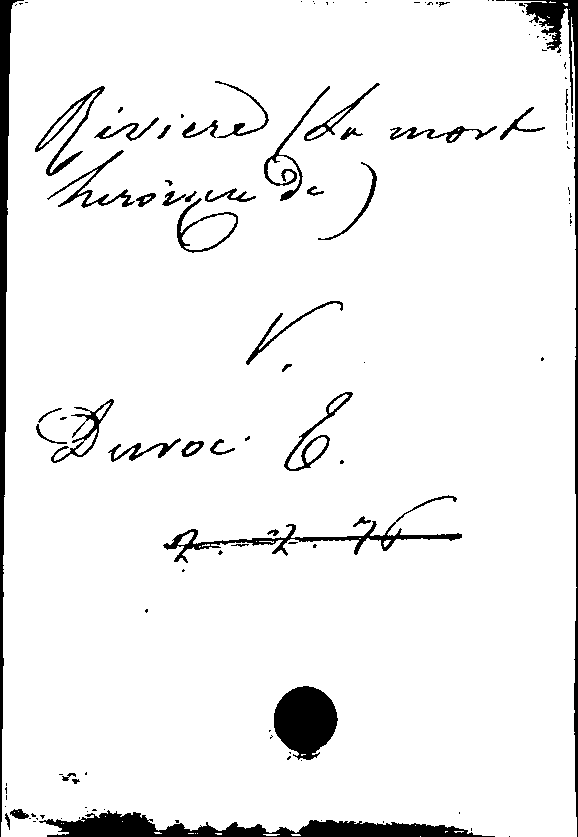 Rivière (La mort
héroïque de)
V.
Duroc E.
Z. Z. 76